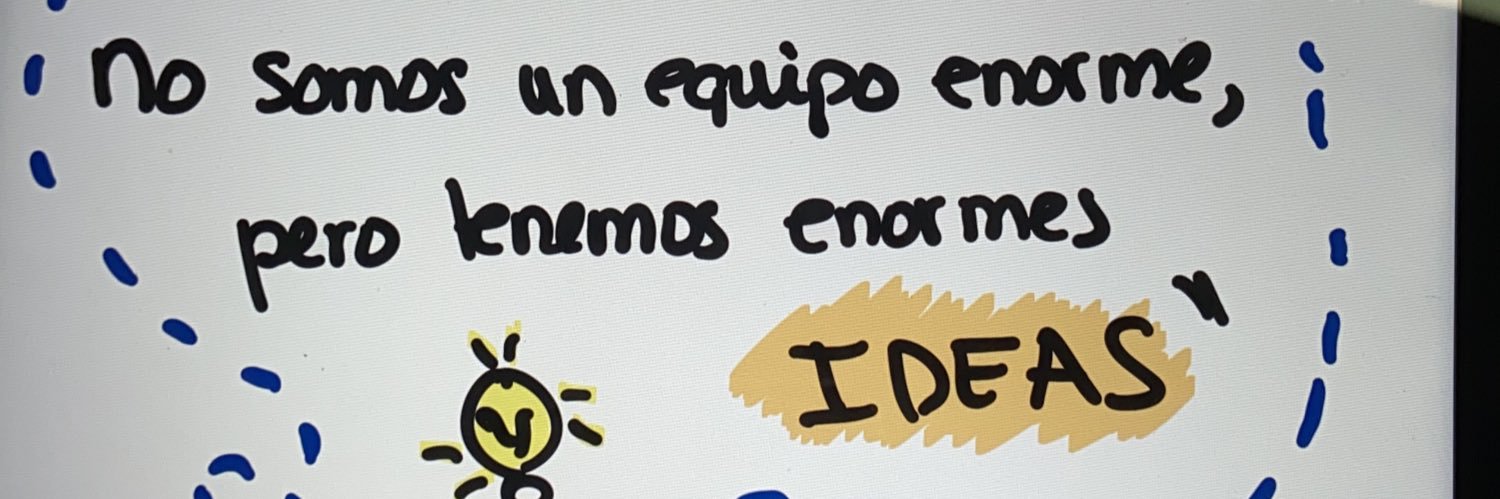 No somos un equipo enorme,
pero tenemos enormes
IDEAS"